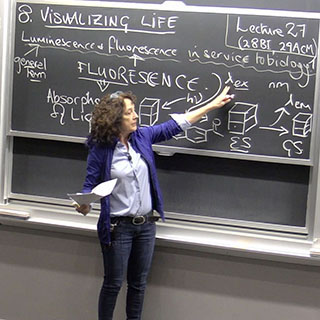 8. VISUALIZING LIFE
Lecture 27
(28BI, 29ACM)
Luminescence & fluorescence in service to biology
general
term
FLUORESCENCE
λex
nm
λem
Absorp
of Lig
hν
ES
GS